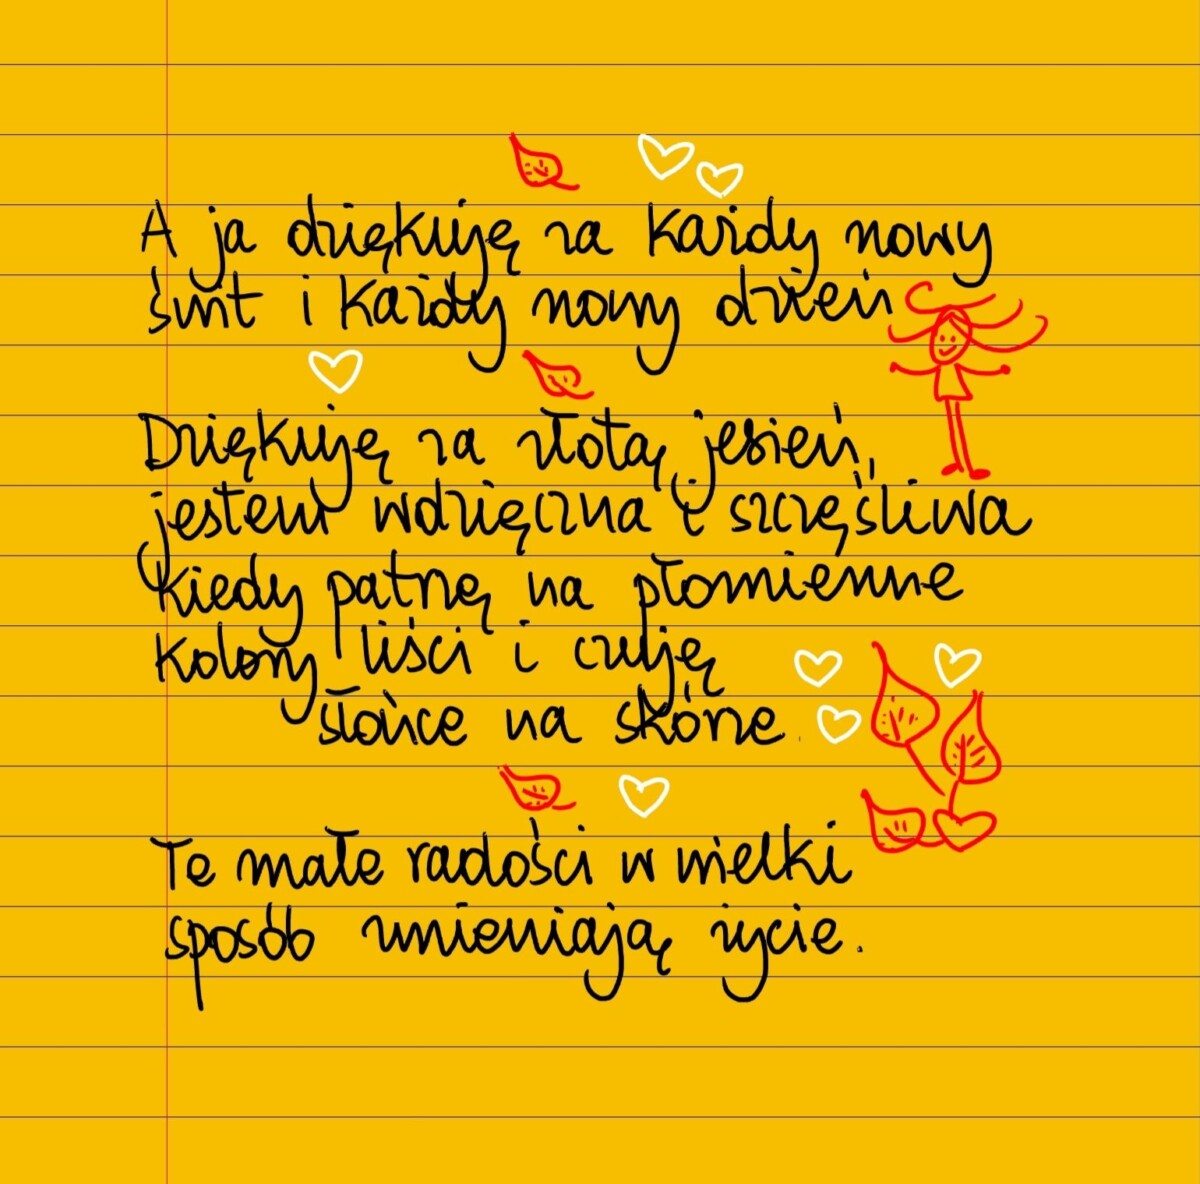 A ja dziękuję za każdy nowy
świt i każdy nowy dzień
Dziękuję za złotą jesień,
jestem wdzięczna i szczęśliwa
kiedy patrzę na płomienne
kolory liści i czuję
słońce na skórze.
Te małe radości w wielki
sposób zmieniają życie.